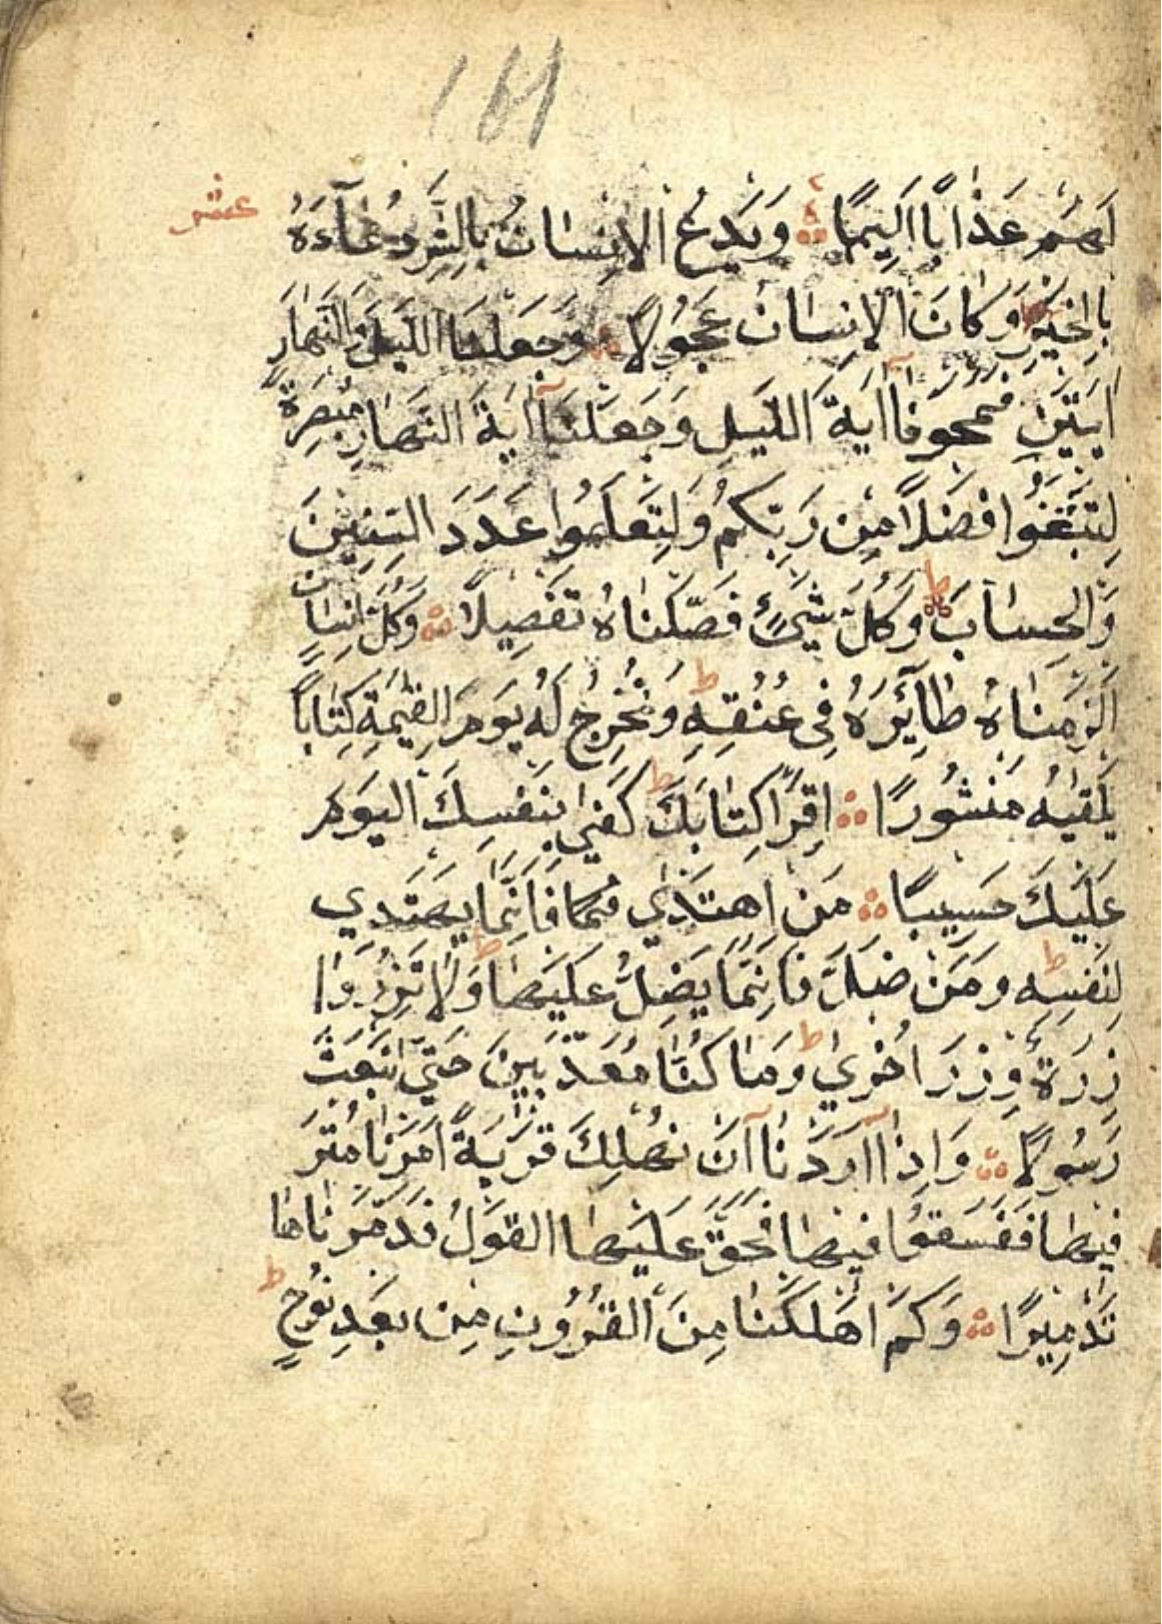 161
عشر
لَهُمْ عَذَابًا اَلِيمًا ۞ وَيَدْعُ الْاِنْسَانُ بِالشَّرِّ دُعَآءَهُ
بِالْخَيْرِ ط وَكَانَ الْاِنْسَانُ عَجُولًا ۞ وَجَعَلْنَا اللَّيْلَ وَالنَّهَارَ
ايَتَيْنِ فَمَحَوْنَآ اايَةَ اللَّيْلِ وَجَعَلْنَآ اايَةَ النَّهَارِ مُبْصِرَةً
لِتَبْتَغُوا فَضْلًا مِنْ رَبِّكُمْ وَلِتَعْلَمُوا عَدَدَ السِّنِينَ
وَالْحِسَابَ ط وَكُلَّ شَيْءٍ فَصَّلْنَاهُ تَفْصِيلًا ۞ وَكُلَّ اِنْسَانٍ
اَلْزَمْنَاهُ طَآئِرَهُ فِي عُنُقِهِ ط وَنُخْرِجُ لَهُ يَوْمَ الْقِيٰمَةِ كِتَابًا
يَلْقٰيهُ مَنْشُورًا ۞ اِقْرَاْ كِتَابَكَ ط كَفٰي بِنَفْسِكَ الْيَوْمَ
عَلَيْكَ حَسِيبًا ۞ مَنِ اهْتَدٰي فَاِنَّمَا يَهْتَدِي
لِنَفْسِهِ ط وَمَنْ ضَلَّ فَاِنَّمَا يَضِلُّ عَلَيْهَا ط وَلَا تَزِرُ وَا
زِرَةٌ وِزْرَ اُخْرٰي ط وَمَا كُنَّا مُعَذِّبِينَ حَتّٰي نَبْعَثَ
رَسُولًا ۞ وَاِذَآ اَرَدْنَآ اَنْ نُهْلِكَ قَرْيَةً اَمَرْنَا مُتْرَ
فِيهَا فَفَسَقُوا فِيهَا فَحَقَّ عَلَيْهَا الْقَوْلُ فَدَمَّرْنَاهَا
تَدْمِيرًا ۞ وَكَمْ اَهْلَكْنَا مِنَ الْقُرُونِ مِنْ بَعْدِ نُوحٍ ط